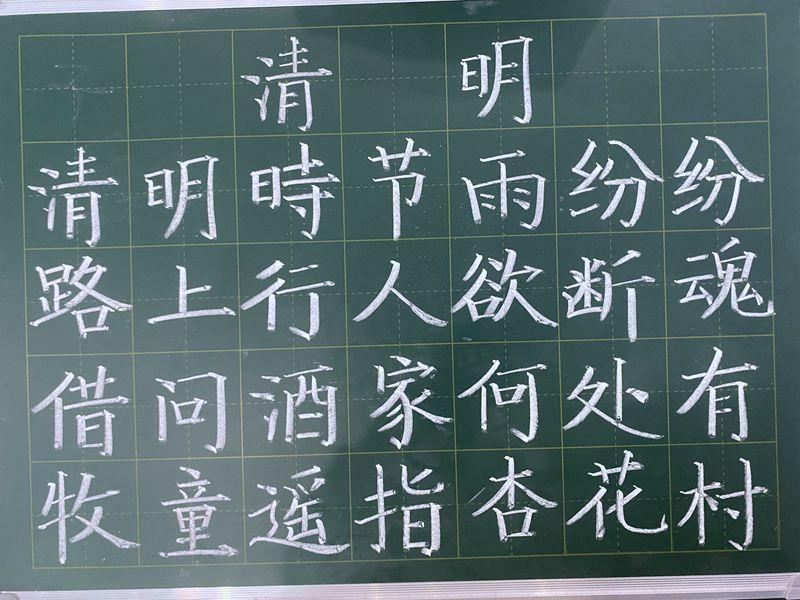 清明
清明時节雨纷纷
路上行人欲断魂
借问酒家何处有
牧童遥指杏花村